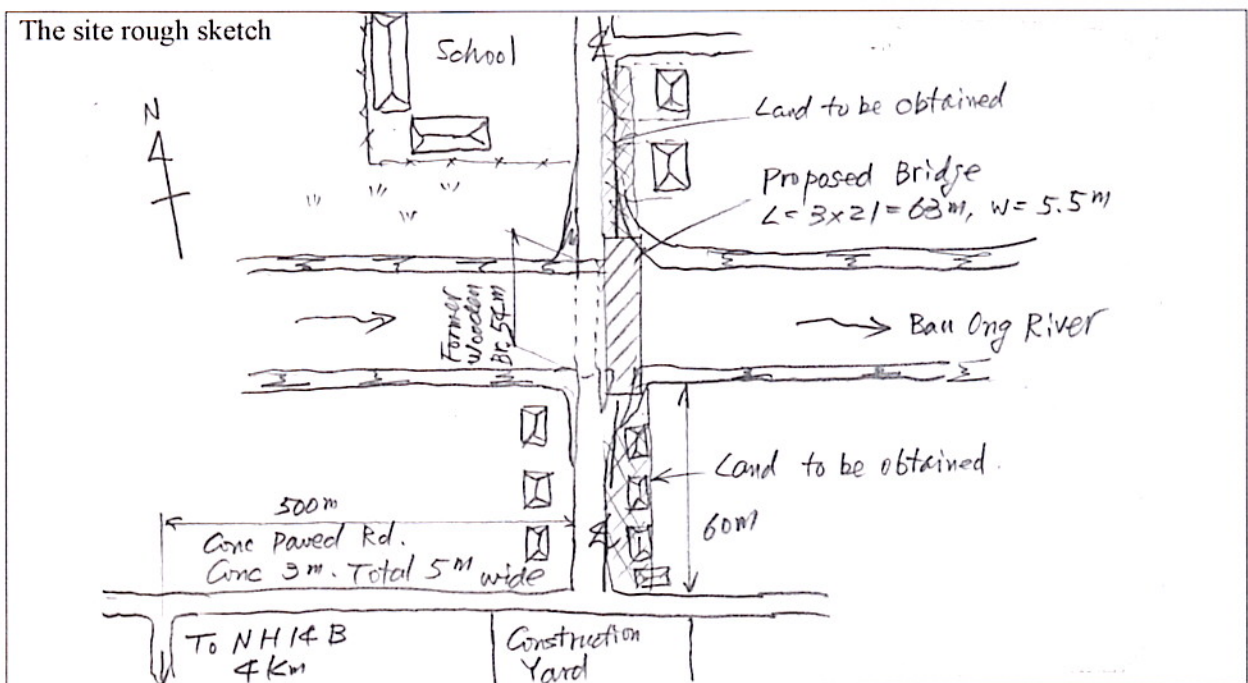 The site rough sketch
School
N
Land to be obtained
Proposed Bridge
L = 3 × 21 = 63m, W = 5.5m
Former
Wooden
Br. 54m
Bau Ong River
Land to be obtained.
60m
500m
Conc Paved Rd.
Conc 3m. Total 5m wide
To NH14B
4Km
Construction
Yard